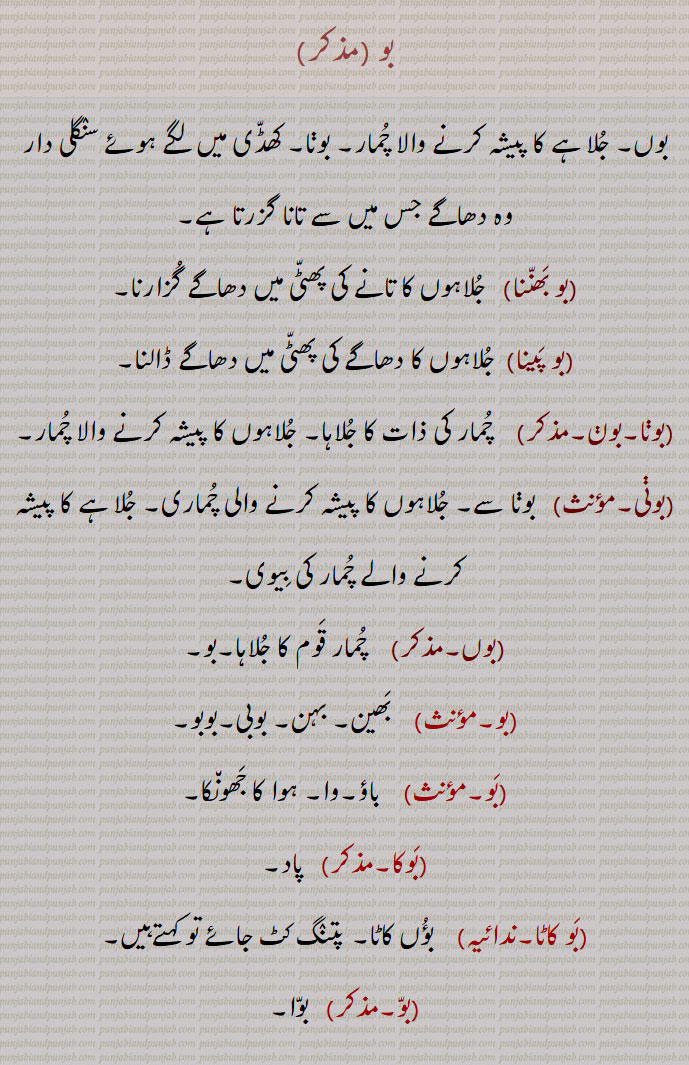 بو (مذکر)
بوں۔ جُلاہے کا پیشہ کرنے والا چُمار۔ بوݨا۔ کھڈّی میں لگے ہوئے سنگلی دار
وہ دھاگے جس میں سے تانا گزرتا ہے۔
(بو بَھنّنا) جُلاہوں کا تانے کی پھٹّی میں دھاگے گُزارنا۔
(بو پَینا) جُلاہوں کا دھاگے کی پھٹّی میں دھاگے ڈالنا۔
(بوݨا۔بوݨ۔مذکر) چُمار کی ذات کا جُلاہا۔ جُلاہوں کا پیشہ کرنے والا چُمار۔
(بوݨی۔مؤنث) بوݨا سے۔ جُلاہوں کا پیشہ کرنے والی چُماری۔ جُلاہے کا پیشہ
کرنے والے چُمار کی بِیوی۔
(بوں۔مذکر) چُمار قَوم کا جُلاہا۔بو۔
(بو۔مؤنث) بَھین۔ بہن۔ بوبی۔بوبو۔
(بَو۔مؤنث) باؤ۔وا۔ ہوا کا جَھونْکا۔
(بَوکا۔مذکر) پاد۔
(بَو کاٹا۔ندائیہ) بوؤُں کاٹا۔ پتنگ کٹ جائے تو کہتےہیں۔
(بوّ۔مذکر) بوّا۔